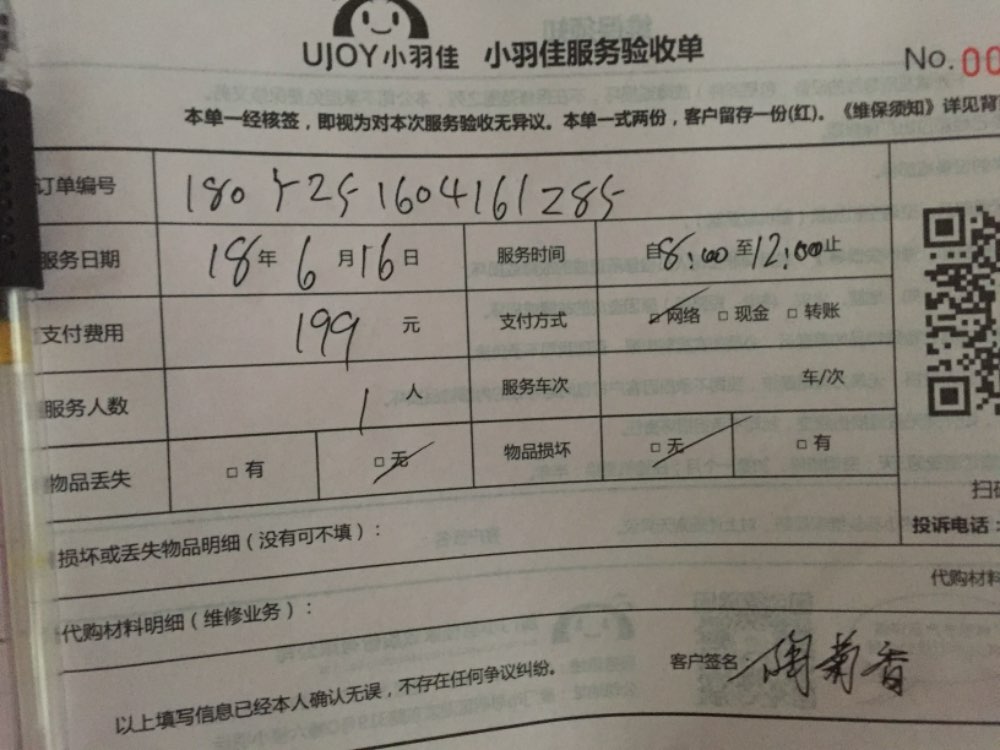 UJOY小羽佳 小羽佳服务验收单
No.00
本单一经核签，即视为对本次服务验收无异议。本单一式两份，客户留存一份(红)。《维保须知》详见背
订单编号 180525 1604161285
服务日期 18年6月16日 服务时间 自8:00至12:00止
支付费用 199 元 支付方式 网络 现金 转账
服务人数 1 人 服务车次 车/次
物品丢失 有 无 物品损坏 无 有
扫
投诉电话：
损坏或丢失物品明细（没有可不填）：
代购材料
代购材料明细（维修业务）：
客户签名：陶菊香
以上填写信息已经本人确认无误，不存在任何争议纠纷。